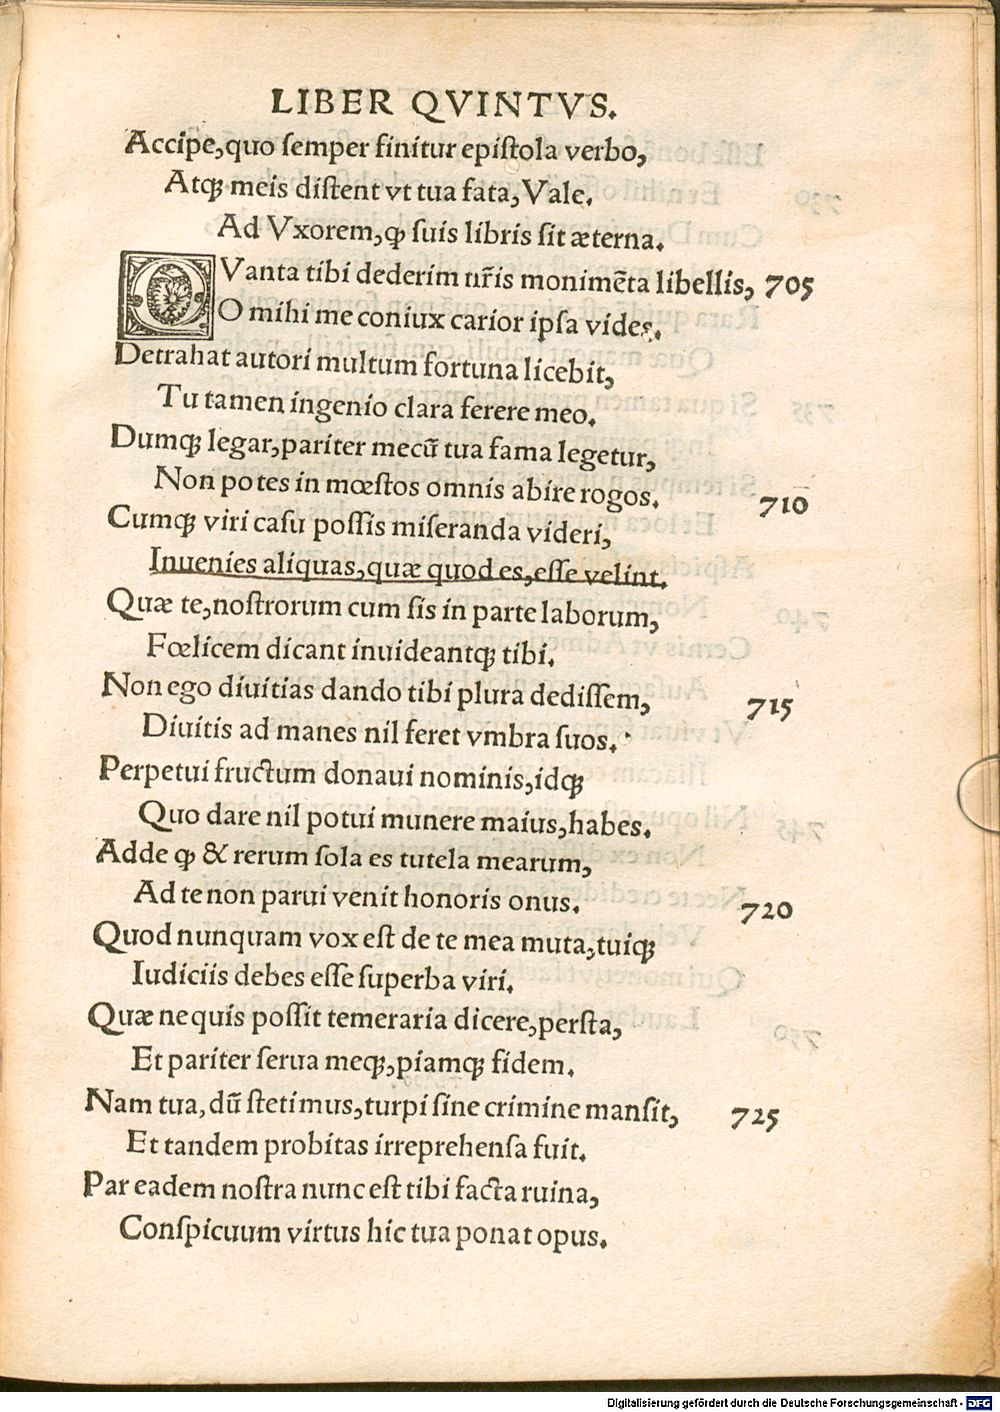 LIBER QVINTVS.
Accipe, quo ſemper finitur epiſtola verbo,
Atqꝫ meis diſtent vt tua fata, Vale.
Ad Vxorem, ꝙ ſuis libris ſit æterna.
QVanta tibi dederim nr̃is monimẽta libellis, 705
O mihi me coniux carior ipſa vides.
Detrahat autori multum fortuna licebit,
Tu tamen ingenio clara ferere meo.
Dumqꝫ legar, pariter mecũ tua fama legetur,
Non potes in mœſtos omnis abire rogos. 710
Cumqꝫ viri caſu poſſis miſeranda videri,
Inuenies aliquas, quæ quod es, eſſe velint.
Quæ te, noſtrorum cum ſis in parte laborum,
Fœlicem dicant inuideantqꝫ tibi.
Non ego diuitias dando tibi plura dediſſem, 715
Diuitis ad manes nil feret vmbra ſuos.
Perpetui fructum donaui nominis, idqꝫ
Quo dare nil potui munere maius, habes.
Adde ꝙ & rerum ſola es tutela mearum,
Ad te non parui venit honoris onus. 720
Quod nunquam vox eſt de te mea muta, tuiqꝫ
Iudiciis debes eſſe ſuperba viri.
Quæ ne quis poſſit temeraria dicere, perſta,
Et pariter ſerua meqꝫ, piamqꝫ fidem.
Nam tua, dũ ſtetimus, turpi ſine crimine manſit, 725
Et tandem probitas irreprehenſa fuit.
Par eadem noſtra nunc eſt tibi facta ruina,
Conſpicuum virtus hic tua ponat opus.
Digitalisierung gefördert durch die Deutsche Forschungsgemeinschaft - DFG